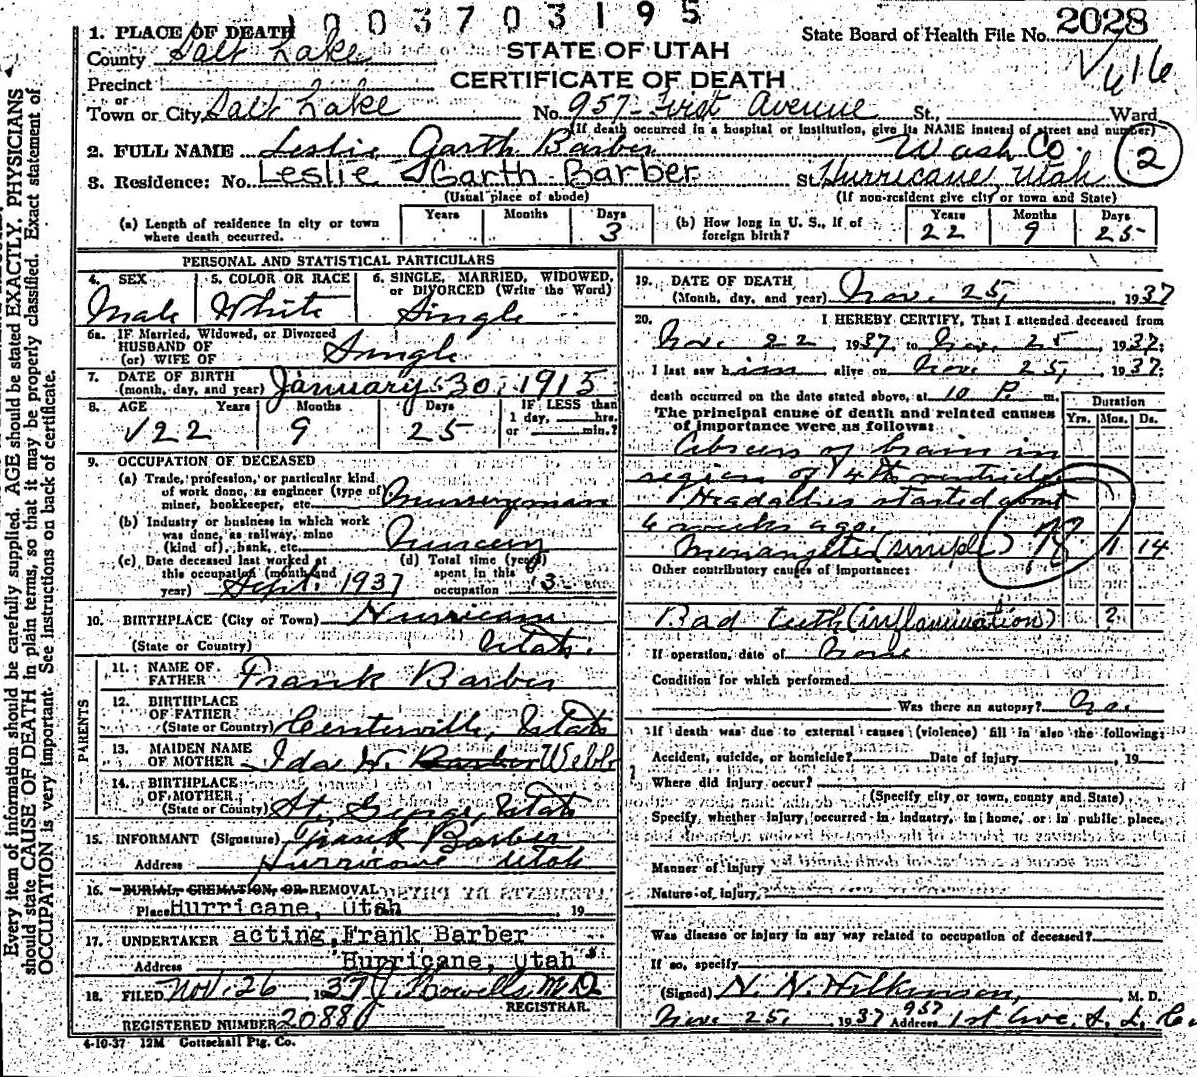 003703195
1. PLACE OF DEATH
State Board of Health File No. 2028
County Salt Lake
STATE OF UTAH
Precinct
CERTIFICATE OF DEATH
or
Town or City Salt Lake No. 957-First Avenue St., Ward
(If death occurred in a hospital or institution, give its NAME instead of street and number)
2. FULL NAME Leslie Garth Barber Wash Co. 2
3. Residence: No. Leslie Garth Barber St. Hurricane, Utah
(Usual place of abode) (If non-resident give city or town and State)
(a) Length of residence in city or town where death occurred. Years Months Days 3
(b) How long in U. S., if of foreign birth? Years 22 Months 9 Days 25
PERSONAL AND STATISTICAL PARTICULARS
4. SEX Male
5. COLOR OR RACE White
6. SINGLE, MARRIED, WIDOWED, or DIVORCED (Write the Word) Single
6a. IF Married, Widowed, or Divorced
HUSBAND OF
(or) WIFE OF Single
7. DATE OF BIRTH
(month, day, and year) January 30, 1915
8. AGE Years 22 Months 9 Days 25 IF LESS than 1 day, hrs. or min.?
9. OCCUPATION OF DECEASED
(a) Trade, profession, or particular kind
of work done, as engineer (type of
miner, bookkeeper, etc. Nurseryman
(b) Industry or business in which work
was done, as railway, mine
(kind of), bank, etc. Nursery
(c) Date deceased last worked at
this occupation (month and
year) Sept. 1937
(d) Total time (years)
spent in this
occupation 3
10. BIRTHPLACE (City or Town) Hurricane
(State or Country) Utah.
PARENTS
11. NAME OF
FATHER Frank Barber
12. BIRTHPLACE
OF FATHER
(State or Country) Centerville, Utah
13. MAIDEN NAME
OF MOTHER Ida W. Barber Webb
14. BIRTHPLACE
OF MOTHER
(State or Country) St. George, Utah
15. INFORMANT (Signature) Frank Barber
Address Hurricane Utah
16. BURIAL, CREMATION, OR REMOVAL
Place Hurricane, Utah , 19
17. UNDERTAKER acting, Frank Barber
Address Hurricane, Utah
18. FILED Nov. 26 1937 J. Howells M.D.
REGISTRAR.
REGISTERED NUMBER 2088
4-10-37 12M Gottschall Ptg. Co.
19. DATE OF DEATH
(Month, day, and year) Nov. 25, , 1937
20. I HEREBY CERTIFY, That I attended deceased from
Nov. 22 , 1937, to Nov. 25 , 1937;
I last saw him alive on Nov. 25, , 1937;
death occurred on the date stated above, at 10 P. m.
The principal cause of death and related causes
of importance were as follows:
Duration
Yrs. Mos. Ds.
Abscess of brain in
region of 4th ventricle
Headaches started about
6 weeks ago.
Meningitis (simple) 1 14
Other contributory causes of importance:
Bad teeth (inflammation) ?
If operation, date of None
Condition for which performed
Was there an autopsy? No.
If death was due to external causes (violence) fill in also the following:
Accident, suicide, or homicide? Date of injury , 19
Where did injury occur?
(Specify city or town, county and State)
Specify whether injury occurred in industry, in home, or in public place.
Manner of injury
Nature of injury
Was disease or injury in any way related to occupation of deceased?
If so, specify
(Signed) N. N. Wilkinson, , M. D.
Nov. 25, 1937 Address 957 1st Ave. S. L. C.
Every item of information should be carefully supplied. AGE should be stated EXACTLY. PHYSICIANS
should state CAUSE OF DEATH in plain terms, so that it may be properly classified. Exact statement of
OCCUPATION is very important. See instructions on back of certificate.